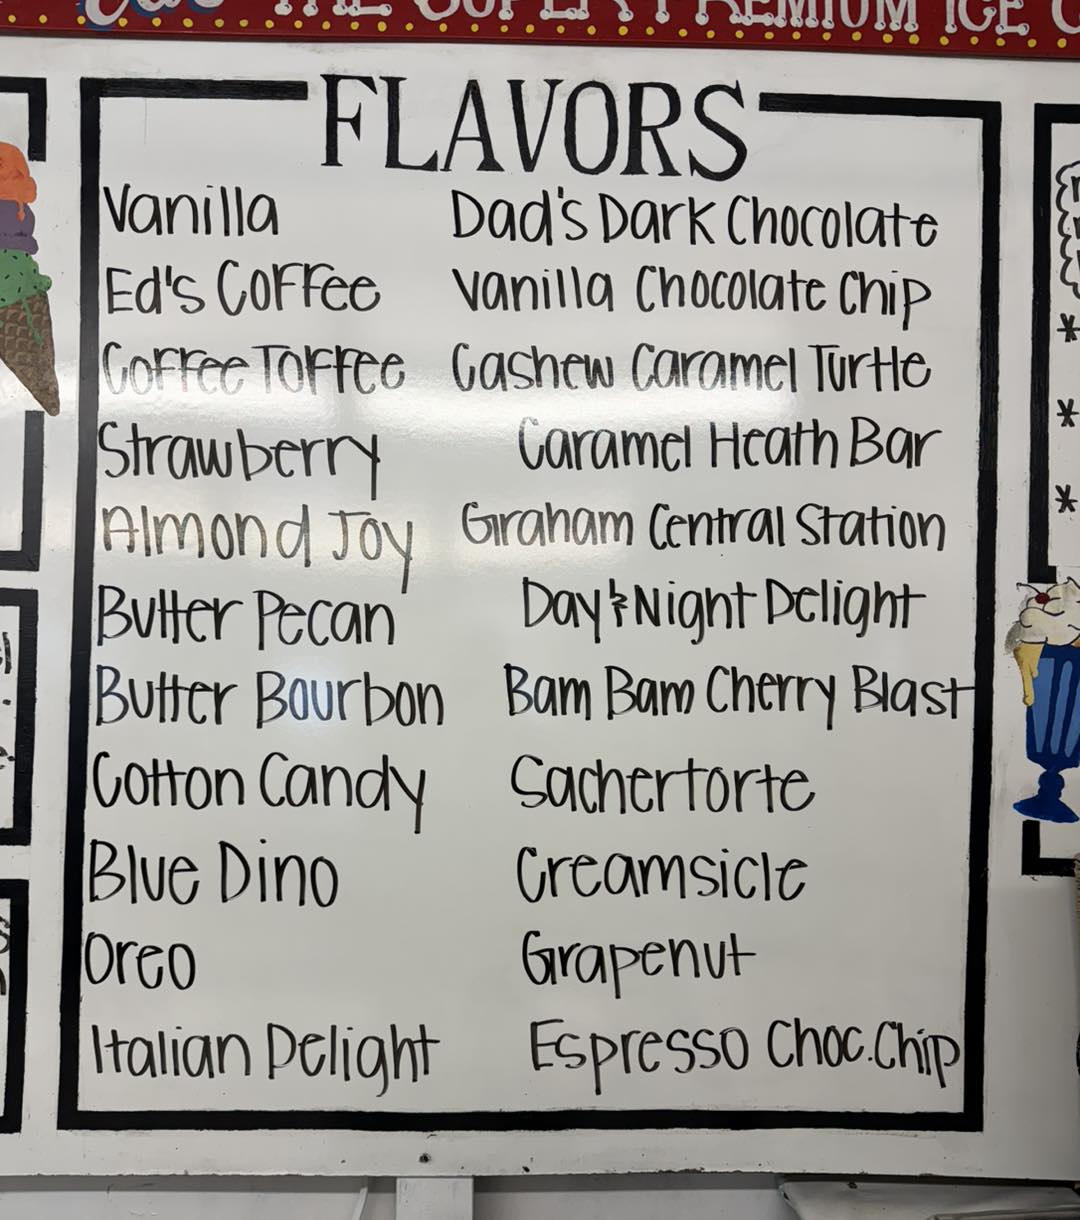 THE SUPER PREMIUM ICE
FLAVORS
Vanilla
Ed's Coffee
Coffee Toffee
Strawberry
Almond Joy
Butter Pecan
Butter Bourbon
Cotton Candy
Blue Dino
Oreo
Italian Delight
Dad's Dark Chocolate
Vanilla Chocolate Chip
Cashew Caramel Turtle
Caramel Heath Bar
Graham Central Station
Day & Night Delight
Bam Bam Cherry Blast
Sachertorte
Creamsicle
Grapenut
Espresso Choc. Chip
*
*
*